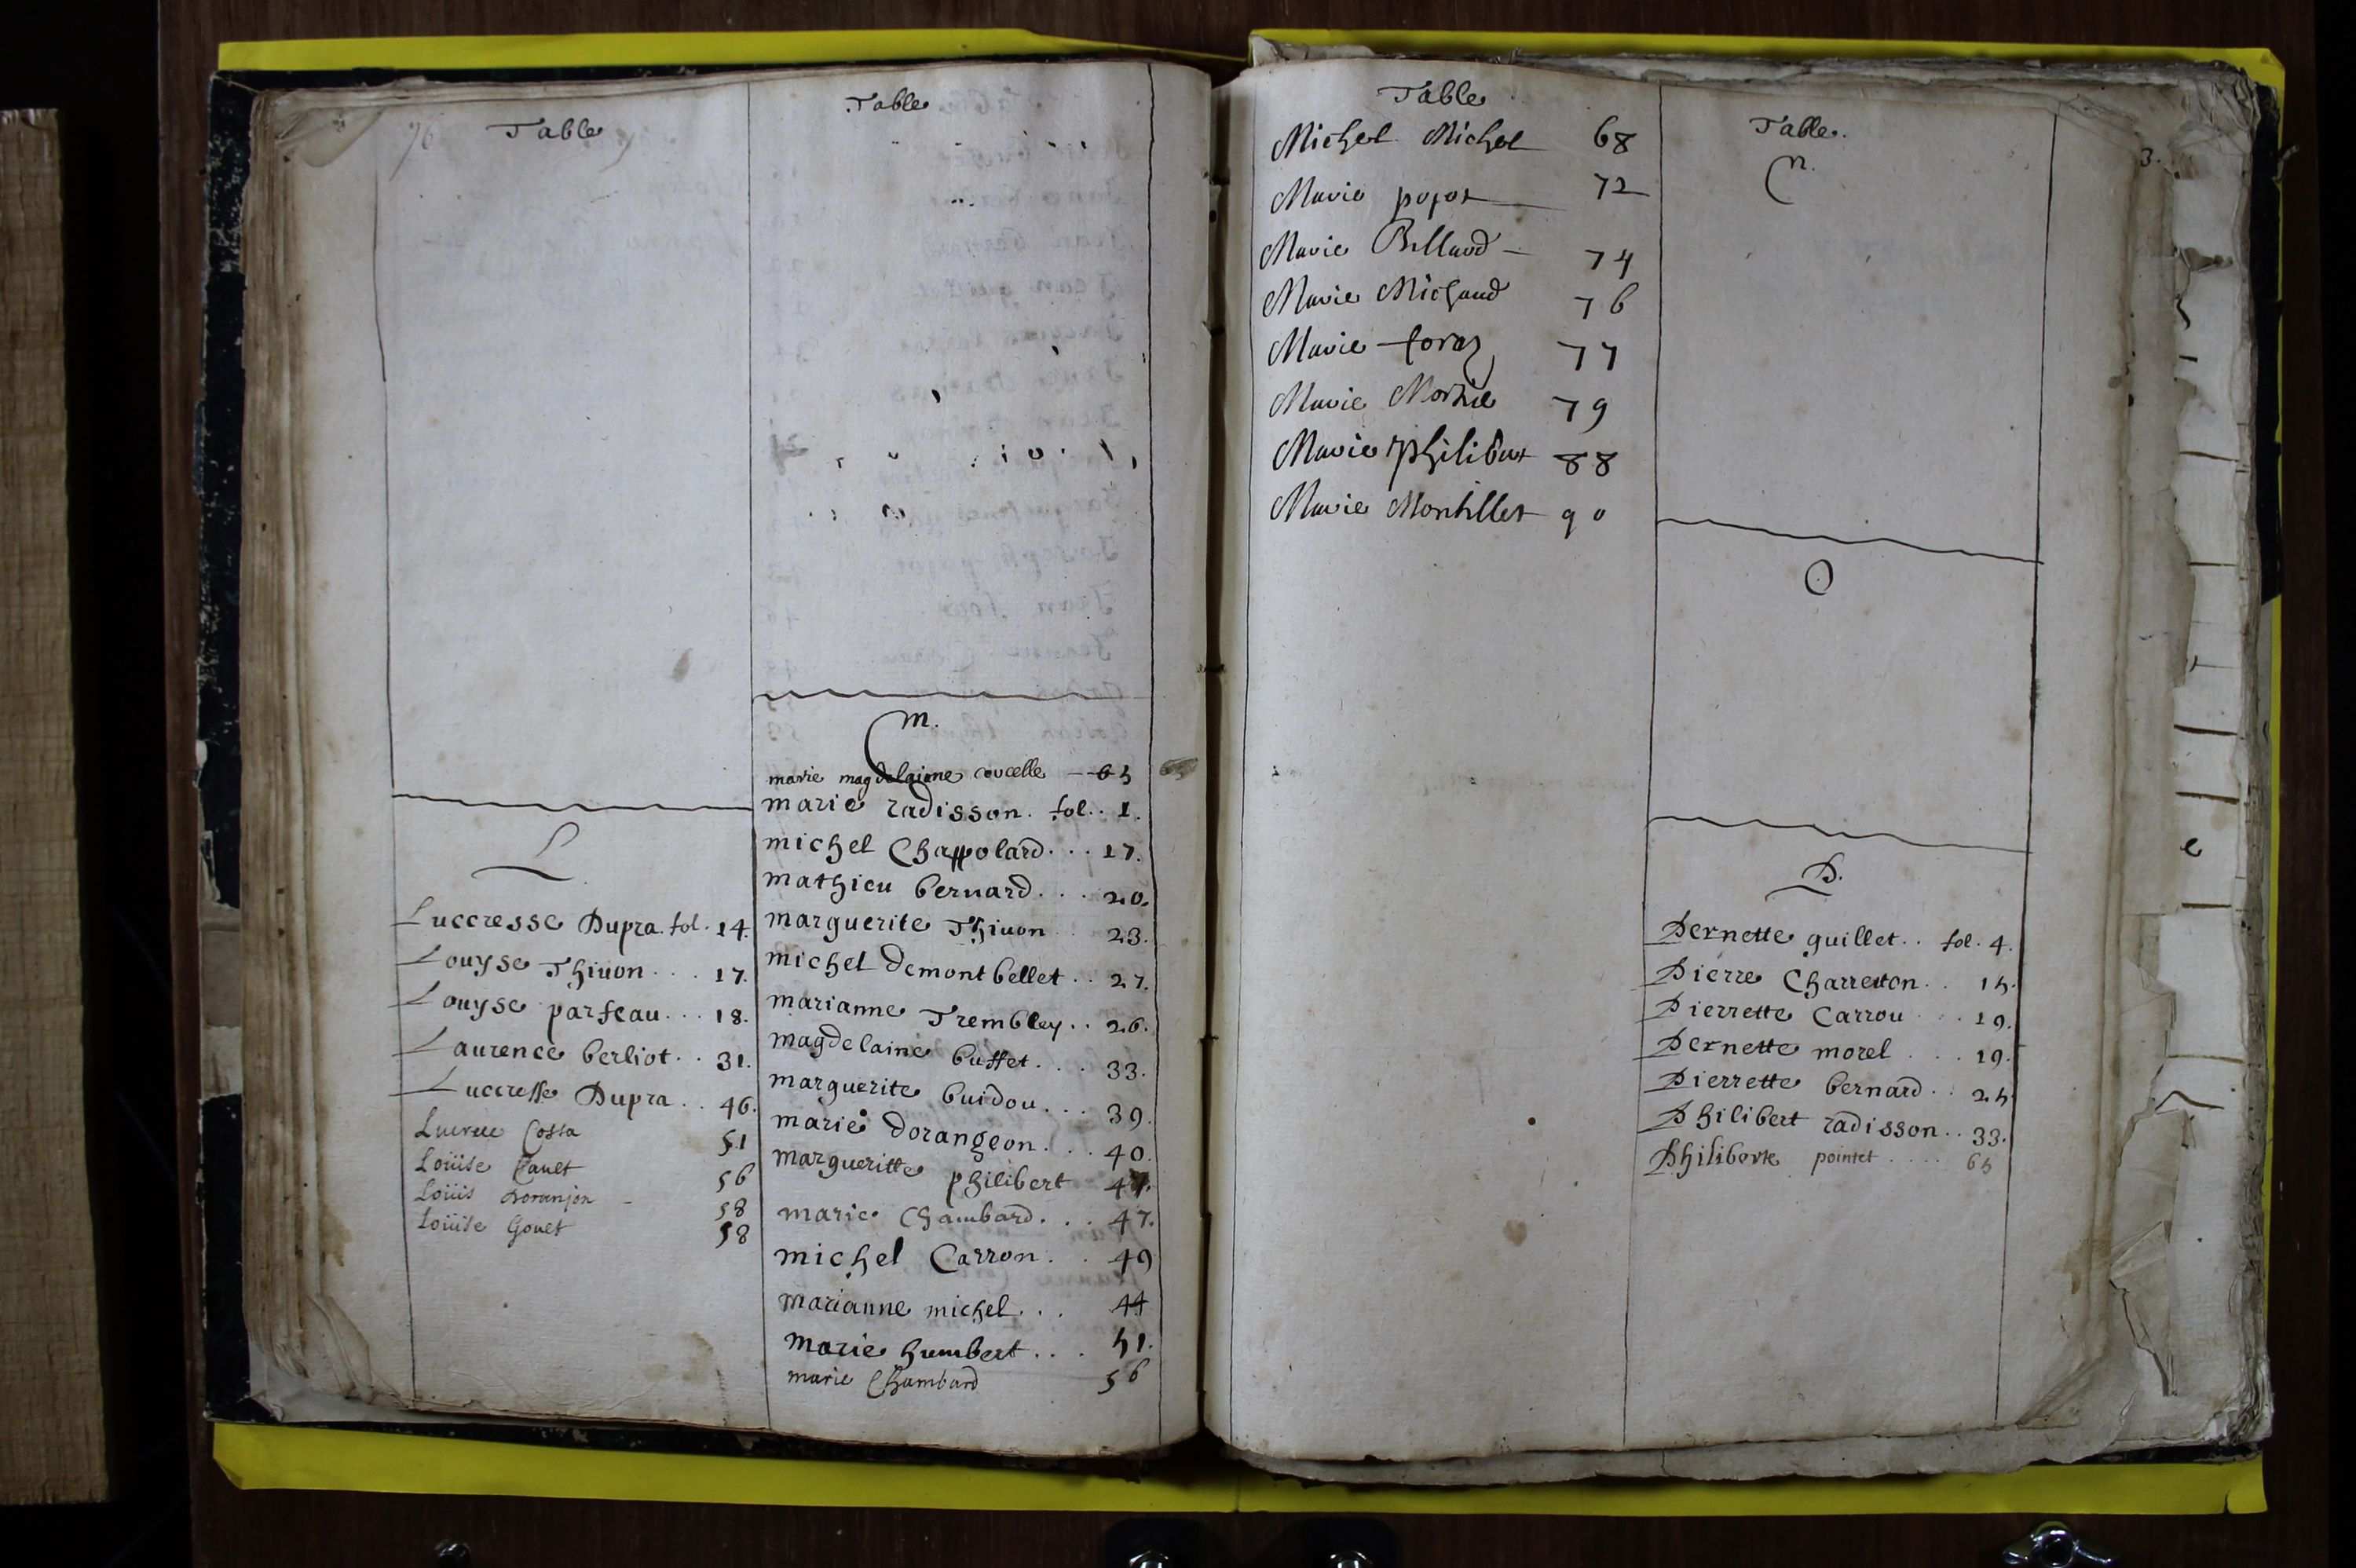 76
Table
L
Luccresse Dupra. fol. 14.
Louyse Thiuon... 17.
Louyse parseau... 18.
Laurence berliot.. 31.
Luccresse Dupra.. 46.
Lucresse Costa 51
Loüise Canet 56
Loüis Doranjon - 58
Loüise Gouet 58
Table
m.
marie magdelaine coucelle - 65
marie radisson. fol.. 1.
michel Chappolard... 17.
mathieu bernard... 20.
marguerite Thiuon.. 23.
michel demontbellet.. 27.
marianne Trembley.. 26.
magdelaine buffet... 33.
marguerite buidou... 39.
marie dorangeon... 40.
margueritte philibert 47.
marie Chambard... 47.
michel Carron.. 49
marianne michel... 44
marie humbert... 51.
marie Chambard 56
Table
Michel Michel 68
Marie pojot 72
Marie Billaud - 74
Marie Michaud 76
Marie foraz 77
Marie 79
Marie philibert 88
Marie Montillet 90
Table.
3.
n.
O
P.
Pernette guillet.. fol. 4.
Pierre Charreton.. 15.
Pierrette Carrou... 19.
Pernette morel... 19.
Pierrette bernard.. 25
Philibert radisson.. 33.
Philiberte pointet.... 65